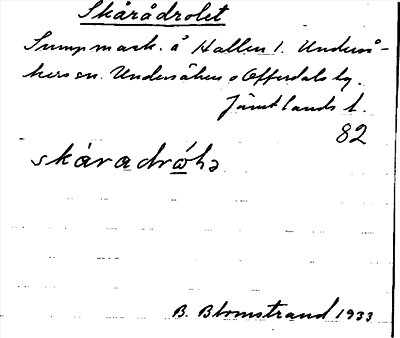 Skårådrolet
Sumpmark. å Hallen 1. Underså-
kers sn. Undersåkers o Offerdals tg.
Jämtlands l.
82
skáradrólə
B. Blomstrand 1933